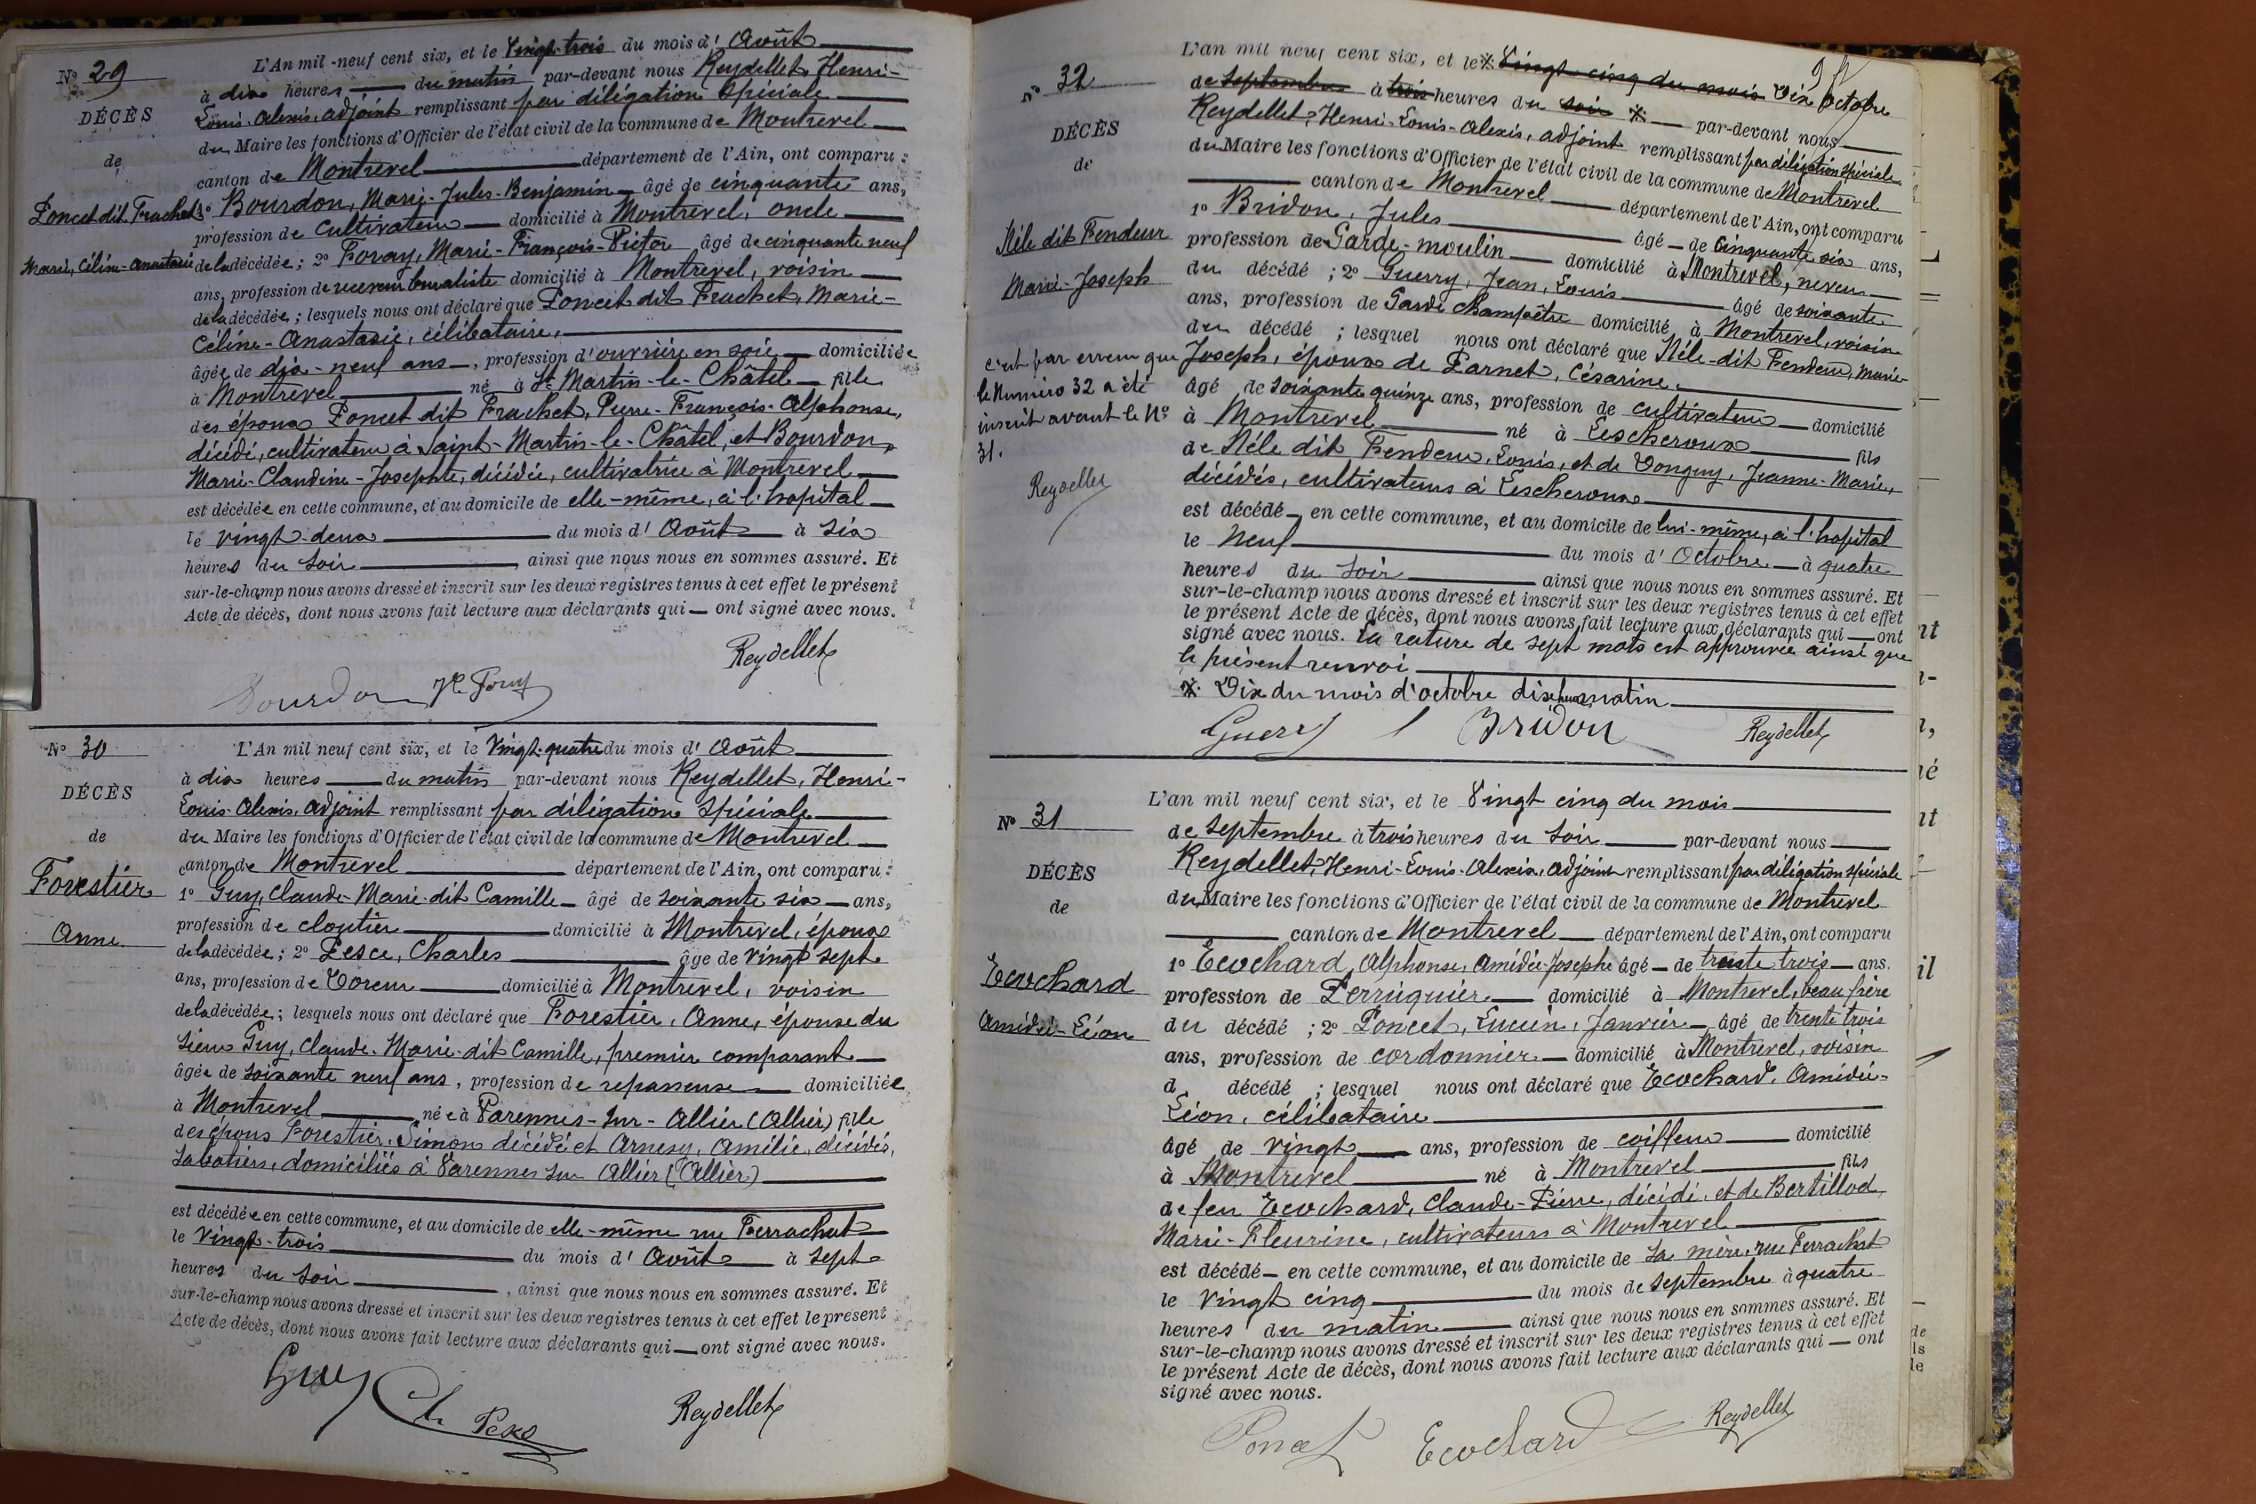 N° 29
DÉCÈS
de
Poncet dit Frachet
Marie, Céline-Anastasie
L'An mil-neuf cent six, et le Vingt-trois du mois d'Août
à dix heures du matin par-devant nous Reydellet, Henri-
Louis-Alexis, adjoint remplissant par délégation spéciale
du Maire les fonctions d'Officier de l'état civil de la commune de Montrevel
canton de Montrevel département de l'Ain, ont comparu :
1° Bourdon, Marie-Jules-Benjamin âgé de cinquante ans,
profession de cultivateur domicilié à Montrevel, oncle
de la décédée ; 2° Foray, Marie-François-Victor âgé de cinquante neuf
ans, profession de receveur buraliste domicilié à Montrevel, voisin
de la décédée ; lesquels nous ont déclaré que Poncet dit Frachet, Marie-
Céline-Anastasie, célibataire,
âgée de dix-neuf ans, profession d'ouvrière en soie domiciliée
à Montrevel né à St Martin-le-Châtel fille
des époux Poncet dit Frachet, Pierre-François-Alphonse,
décédé, cultivateur à Saint-Martin-le-Châtel, et Bourdon,
Marie-Claudine-Josephte, décédée, cultivatrice à Montrevel
est décédée en cette commune, et au domicile de elle-même, à l'hopital
le vingt-deux du mois d'Août à six
heures du soir ainsi que nous nous en sommes assuré. Et
sur-le-champ nous avons dressé et inscrit sur les deux registres tenus à cet effet le présent
Acte de décès, dont nous avons fait lecture aux déclarants qui ont signé avec nous.
Reydellet
Bourdon Foray
N° 30
DÉCÈS
de
Forestier
Anne
L'An mil neuf cent six, et le Vingt-quatre du mois d'Août
à dix heures du matin par-devant nous Reydellet, Henri-
Louis-Alexis, adjoint remplissant par délégation spéciale
du Maire les fonctions d'Officier de l'état civil de la commune de Montrevel
canton de Montrevel département de l'Ain, ont comparu :
1° Guy, Claude-Marie-dit Camille âgé de soixante six ans,
profession de cloutier domicilié à Montrevel, époux
de la décédée ; 2° Pesce, Charles âge de vingt sept
ans, profession de Doreur domicilié à Montrevel, voisin
de la décédée ; lesquels nous ont déclaré que Forestier, Anne, épouse du
sieur Guy, Claude-Marie-dit Camille, premier comparant
âgée de soixante neuf ans, profession de repasseuse domiciliée
à Montrevel née à Varennes-sur-Allier (Allier) fille
des époux Forestier, Simon décédé et Arnesy, Amélie, décédés,
sabotiers, domiciliés à Varennes sur Allier (Allier)
est décédée en cette commune, et au domicile de elle-même rue Ferrachat
le vingt-trois du mois d'Août à sept
heures du soir, ainsi que nous nous en sommes assuré. Et
sur-le-champ nous avons dressé et inscrit sur les deux registres tenus à cet effet le présent
Acte de décès, dont nous avons fait lecture aux déclarants qui ont signé avec nous.
Guy Ch Pesce Reydellet
N° 32
DÉCÈS
de
Néle dit Fendeur
Marie-Joseph
c'est par erreur que
le Numéro 32 a été
inscrit avant le N°
31.
Reydellet
L'an mil neuf cent six, et le * Vingt cinq du mois Dix Octobre
de Septembre à trois heures du soir * par-devant nous
Reydellet, Henri-Louis-Alexis, adjoint remplissant par délégation spéciale
du Maire les fonctions d'Officier de l'état civil de la commune de Montrevel
canton de Montrevel département de l'Ain, ont comparu
1° Bridon, Jules âgé de cinquante six ans,
profession de Garde-moulin domicilié à Montrevel, neveu
du décédé ; 2° Guerry, Jean, Louis âgé de soixante
ans, profession de Garde champêtre domicilié à Montrevel, voisin
du décédé ; lesquel nous ont déclaré que Néle-dit Fendeur, Marie-
Joseph, époux de Parnet, Césarine,
âgé de soixante quinze ans, profession de cultivateur domicilié
à Montrevel né à Lescheroux fils
de Néle dit Fendeur, Louis, et de Donguy, Jeanne-Marie,
décédés, cultivateurs à Lescheroux
est décédé en cette commune, et au domicile de lui-même, à l'hopital
le Neuf du mois d'Octobre à quatre
heures du soir ainsi que nous nous en sommes assuré. Et
sur-le-champ nous avons dressé et inscrit sur les deux registres tenus à cet effet
le présent Acte de décès, dont nous avons fait lecture aux déclarants qui ont
signé avec nous. La rature de sept mots est approuvée ainsi que
le présent renvoi
* Dix du mois d'octobre dix heures matin
Guerry Bridon Reydellet
N° 31
DÉCÈS
de
Ecochard
Amédée-Léon
L'an mil neuf cent six, et le Vingt cinq du mois
de Septembre à trois heures du soir par-devant nous
Reydellet, Henri-Louis-Alexis, adjoint remplissant par délégation spéciale
du Maire les fonctions d'Officier de l'état civil de la commune de Montrevel
canton de Montrevel département de l'Ain, ont comparu
1° Ecochard, Alphonse, Amédée-Josephe âgé de trente trois ans.
profession de Perruquier domicilié à Montrevel, beau frère
du décédé ; 2° Poncet, Lucien, Janvier âgé de trente trois
ans, profession de cordonnier domicilié à Montrevel, voisin
d décédé ; lesquel nous ont déclaré que Ecochard, Amédée-
Léon, célibataire
âgé de vingt ans, profession de coiffeur domicilié
à Montrevel né à Montrevel fils
de feu Ecochard, Claude-Pierre, décédé, et de Bertillod,
Marie-Fleurine, cultivateurs à Montrevel
est décédé en cette commune, et au domicile de sa mère, rue Ferrachat
le vingt cinq du mois de septembre à quatre
heures du matin ainsi que nous nous en sommes assuré. Et
sur-le-champ nous avons dressé et inscrit sur les deux registres tenus à cet effet
le présent Acte de décès, dont nous avons fait lecture aux déclarants qui ont
signé avec nous.
Poncet Ecochard Reydellet